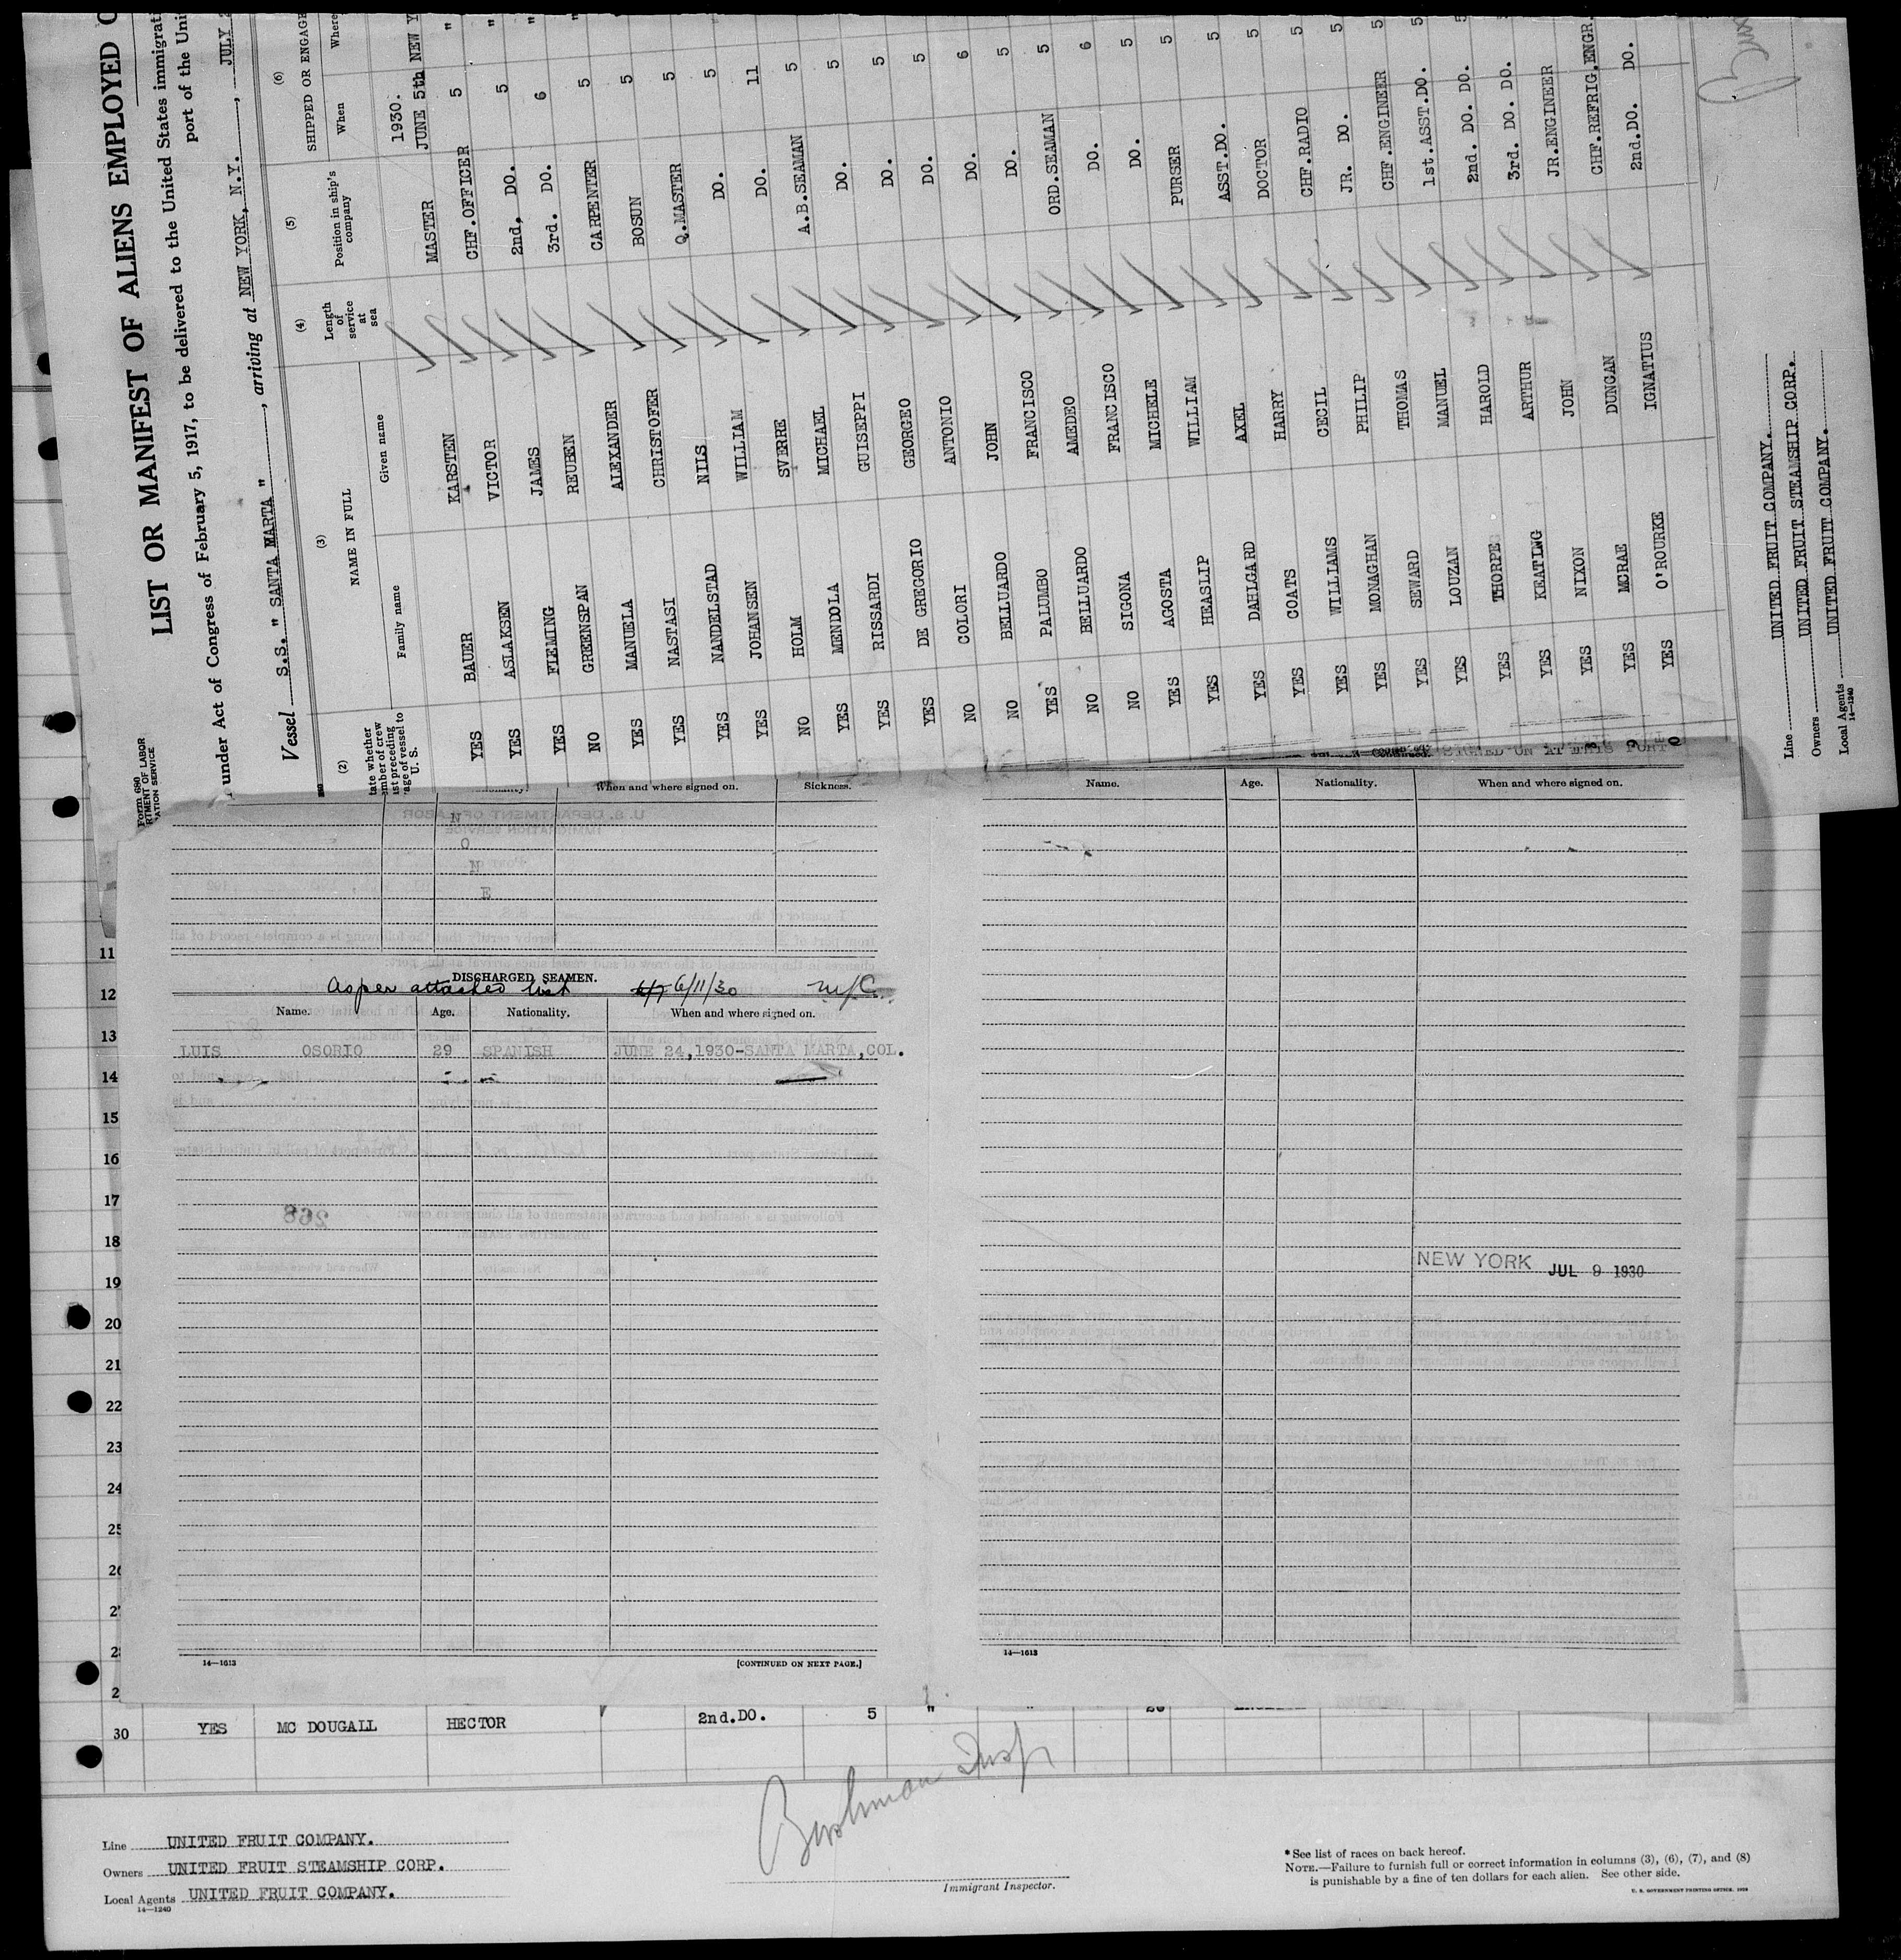 LIST OR MANIFEST OF ALIENS EMPLOYED
under Act of Congress of February 5, 1917, to be delivered to the United States
port of the
Vessel S.S. " SANTA MARTA ", arriving at NEW YORK, N.Y., JULY
(2) (3) (4) (5) (6)
NAME IN FULL
Length of service at sea
Position in ship's company
SHIPPED OR ENGAGE
Family name Given name When Where
1930.
YES BAUER KARSTEN MASTER JUNE 5th NEW Y
YES ASLAKSEN VICTOR CHF.OFFICER 5 "
YES FLEMING JAMES 2nd. DO. 5 "
NO GREENSPAN REUBEN 3rd. DO. 6 "
YES MANUELA ALEXANDER CARPENTER 5 "
YES NASTASI CHRISTOFER BOSUN 5
YES NANDELSTAD NILS Q.MASTER 5
YES JOHANSEN WILLIAM DO. 5
NO HOLM SVERRE DO. 11
YES MENDOLA MICHAEL A.B.SEAMAN 5
YES RISSARDI GUISEPPI DO. 5
YES DE GREGORIO GEORGEO DO. 5
NO COLORI ANTONIO DO. 5
NO BELLUARDO JOHN DO. 6
YES PALUMBO FRANCISCO DO. 5
NO BELLUARDO AMEDEO ORD.SEAMAN 5
NO SIGONA FRANCISCO DO. 6
YES AGOSTA MICHELE DO. 5
YES HEASLIP WILLIAM PURSER 5
YES DAHLGARD AXEL ASST.DO. 5
YES COATS HARRY DOCTOR 5
YES WILLIAMS CECIL CHF.RADIO 5
YES MONAGHAN PHILIP JR. DO. 5
YES SEWARD THOMAS CHF.ENGINEER 5
YES LOUZAN MANUEL 1st.ASST.DO. 5
YES THORPE HAROLD 2nd. DO. DO. 5
YES KEATING ARTHUR 3rd. DO. DO.
YES NIXON JOHN JR.ENGINEER
YES MCRAE DUNCAN CHF.REFRIG.ENGR.
YES O'ROURKE IGNATIUS 2nd.DO. DO.
Line UNITED FRUIT COMPANY.
Owners UNITED FRUIT STEAMSHIP CORP.
Local Agents UNITED FRUIT COMPANY.
14—1240
When and where signed on. Sickness.
N
O
N
E
DISCHARGED SEAMEN.
As per attached list 6/11/30
Name. Age. Nationality. When and where signed on.
LUIS OSORIO 29 SPANISH JUNE 24,1930-SANTA MARTA,COL.
14—1613 [CONTINUED ON NEXT PAGE.]
Name. Age. Nationality. When and where signed on.
NEW YORK JUL 9 1930
14—1613
11
12
13
14
15
16
17
18
19
20
21
22
23
24
30 YES MC DOUGALL HECTOR 2nd.DO. 5 "
Line UNITED FRUIT COMPANY.
Owners UNITED FRUIT STEAMSHIP CORP.
Local Agents UNITED FRUIT COMPANY.
14—1240
Immigrant Inspector.
* See list of races on back hereof.
NOTE.—Failure to furnish full or correct information in columns (3), (6), (7), and (8)
is punishable by a fine of ten dollars for each alien. See other side.